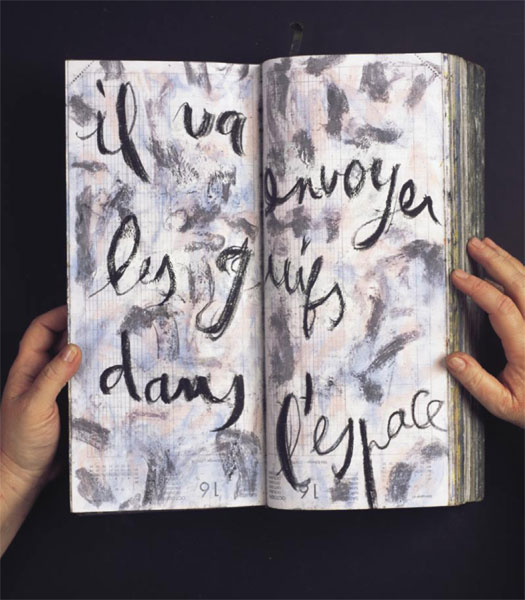 il va envoyer
les guifs
dans l'espace